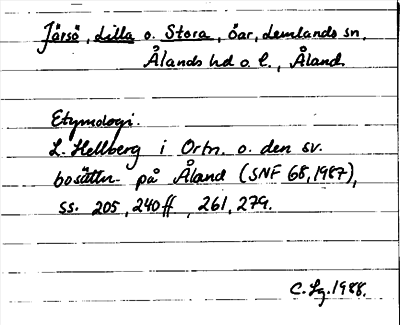 Järsö, Lilla o. Stora, öar, Lemlands sn,
Ålands hd o. l., Åland
Etymologi.
L. Hellberg i Ortn. o. den sv.
bosättn. på Åland (SNF 68, 1987),
ss. 205, 240 ff, 261, 279.
C. Lg. 1988.